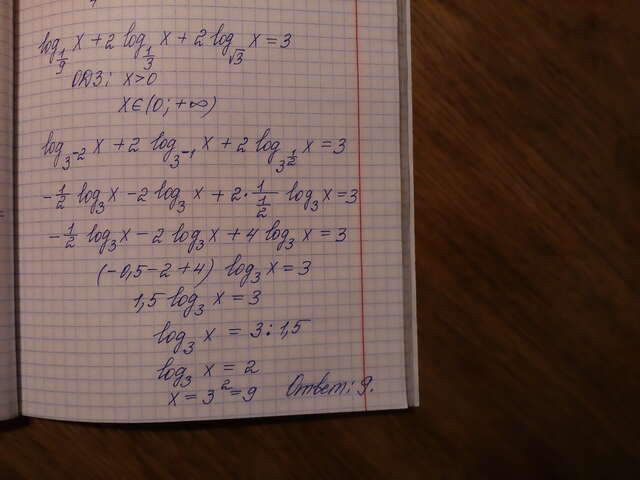 log_{1/9} x + 2 log_{1/3} x + 2 log_{√3} x = 3
ОДЗ: x>0
x∈(0; +∞)
log_{3^{-2}} x + 2 log_{3^{-1}} x + 2 log_{3^{1/2}} x = 3
-1/2 log_3 x - 2 log_3 x + 2 · 1/(1/2) log_3 x = 3
-1/2 log_3 x - 2 log_3 x + 4 log_3 x = 3
(-0,5-2+4) log_3 x = 3
1,5 log_3 x = 3
log_3 x = 3:1,5
log_3 x = 2
x = 3^2 = 9 Ответ: 9.